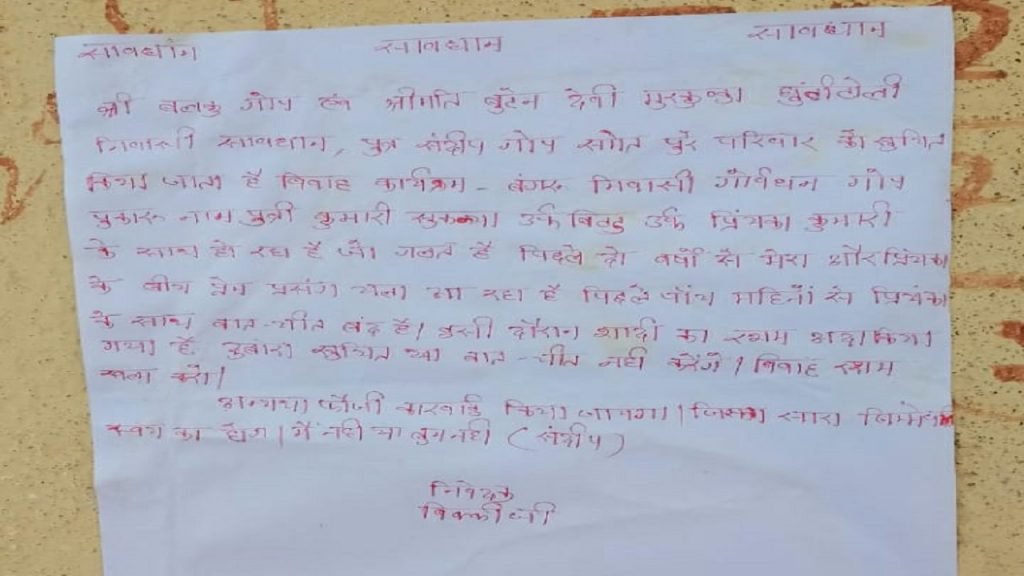 सावधान सावधान सावधान
श्री बलकु गोप एवं श्रीमति बुटन देवी मुरकुका
निवासी सावधान, पुत्र संदीप गोप समेत पुरे परिवार को सुचित
किया जाता है विवाह कार्यक्रम - बंगरू निवासी गोर्वधन गोप
नाम पुत्री कुमारी उर्फ उर्फ प्रियंका कुमारी
के साथ हो रहा है जो गलत है पिछले दो वर्षों से मेरा और प्रियंका
के बीच प्रेम प्रसंग चला आ रहा है पिछले पाँच महिनों से प्रियंका
के साथ बात-चीत बंद है। इसी दौरान शादी का रसम अदा किया
गया है दुबारा सुचित या बात-चीत नहीं करेंगे। विवाह रसम
करो।
अन्यथा फौजी कारवाई किया जायगा। जिसका सारा
स्वयं का होगा। मैं नहीं या तुम नहीं (संदीप)
निवेदक
विक्की जी